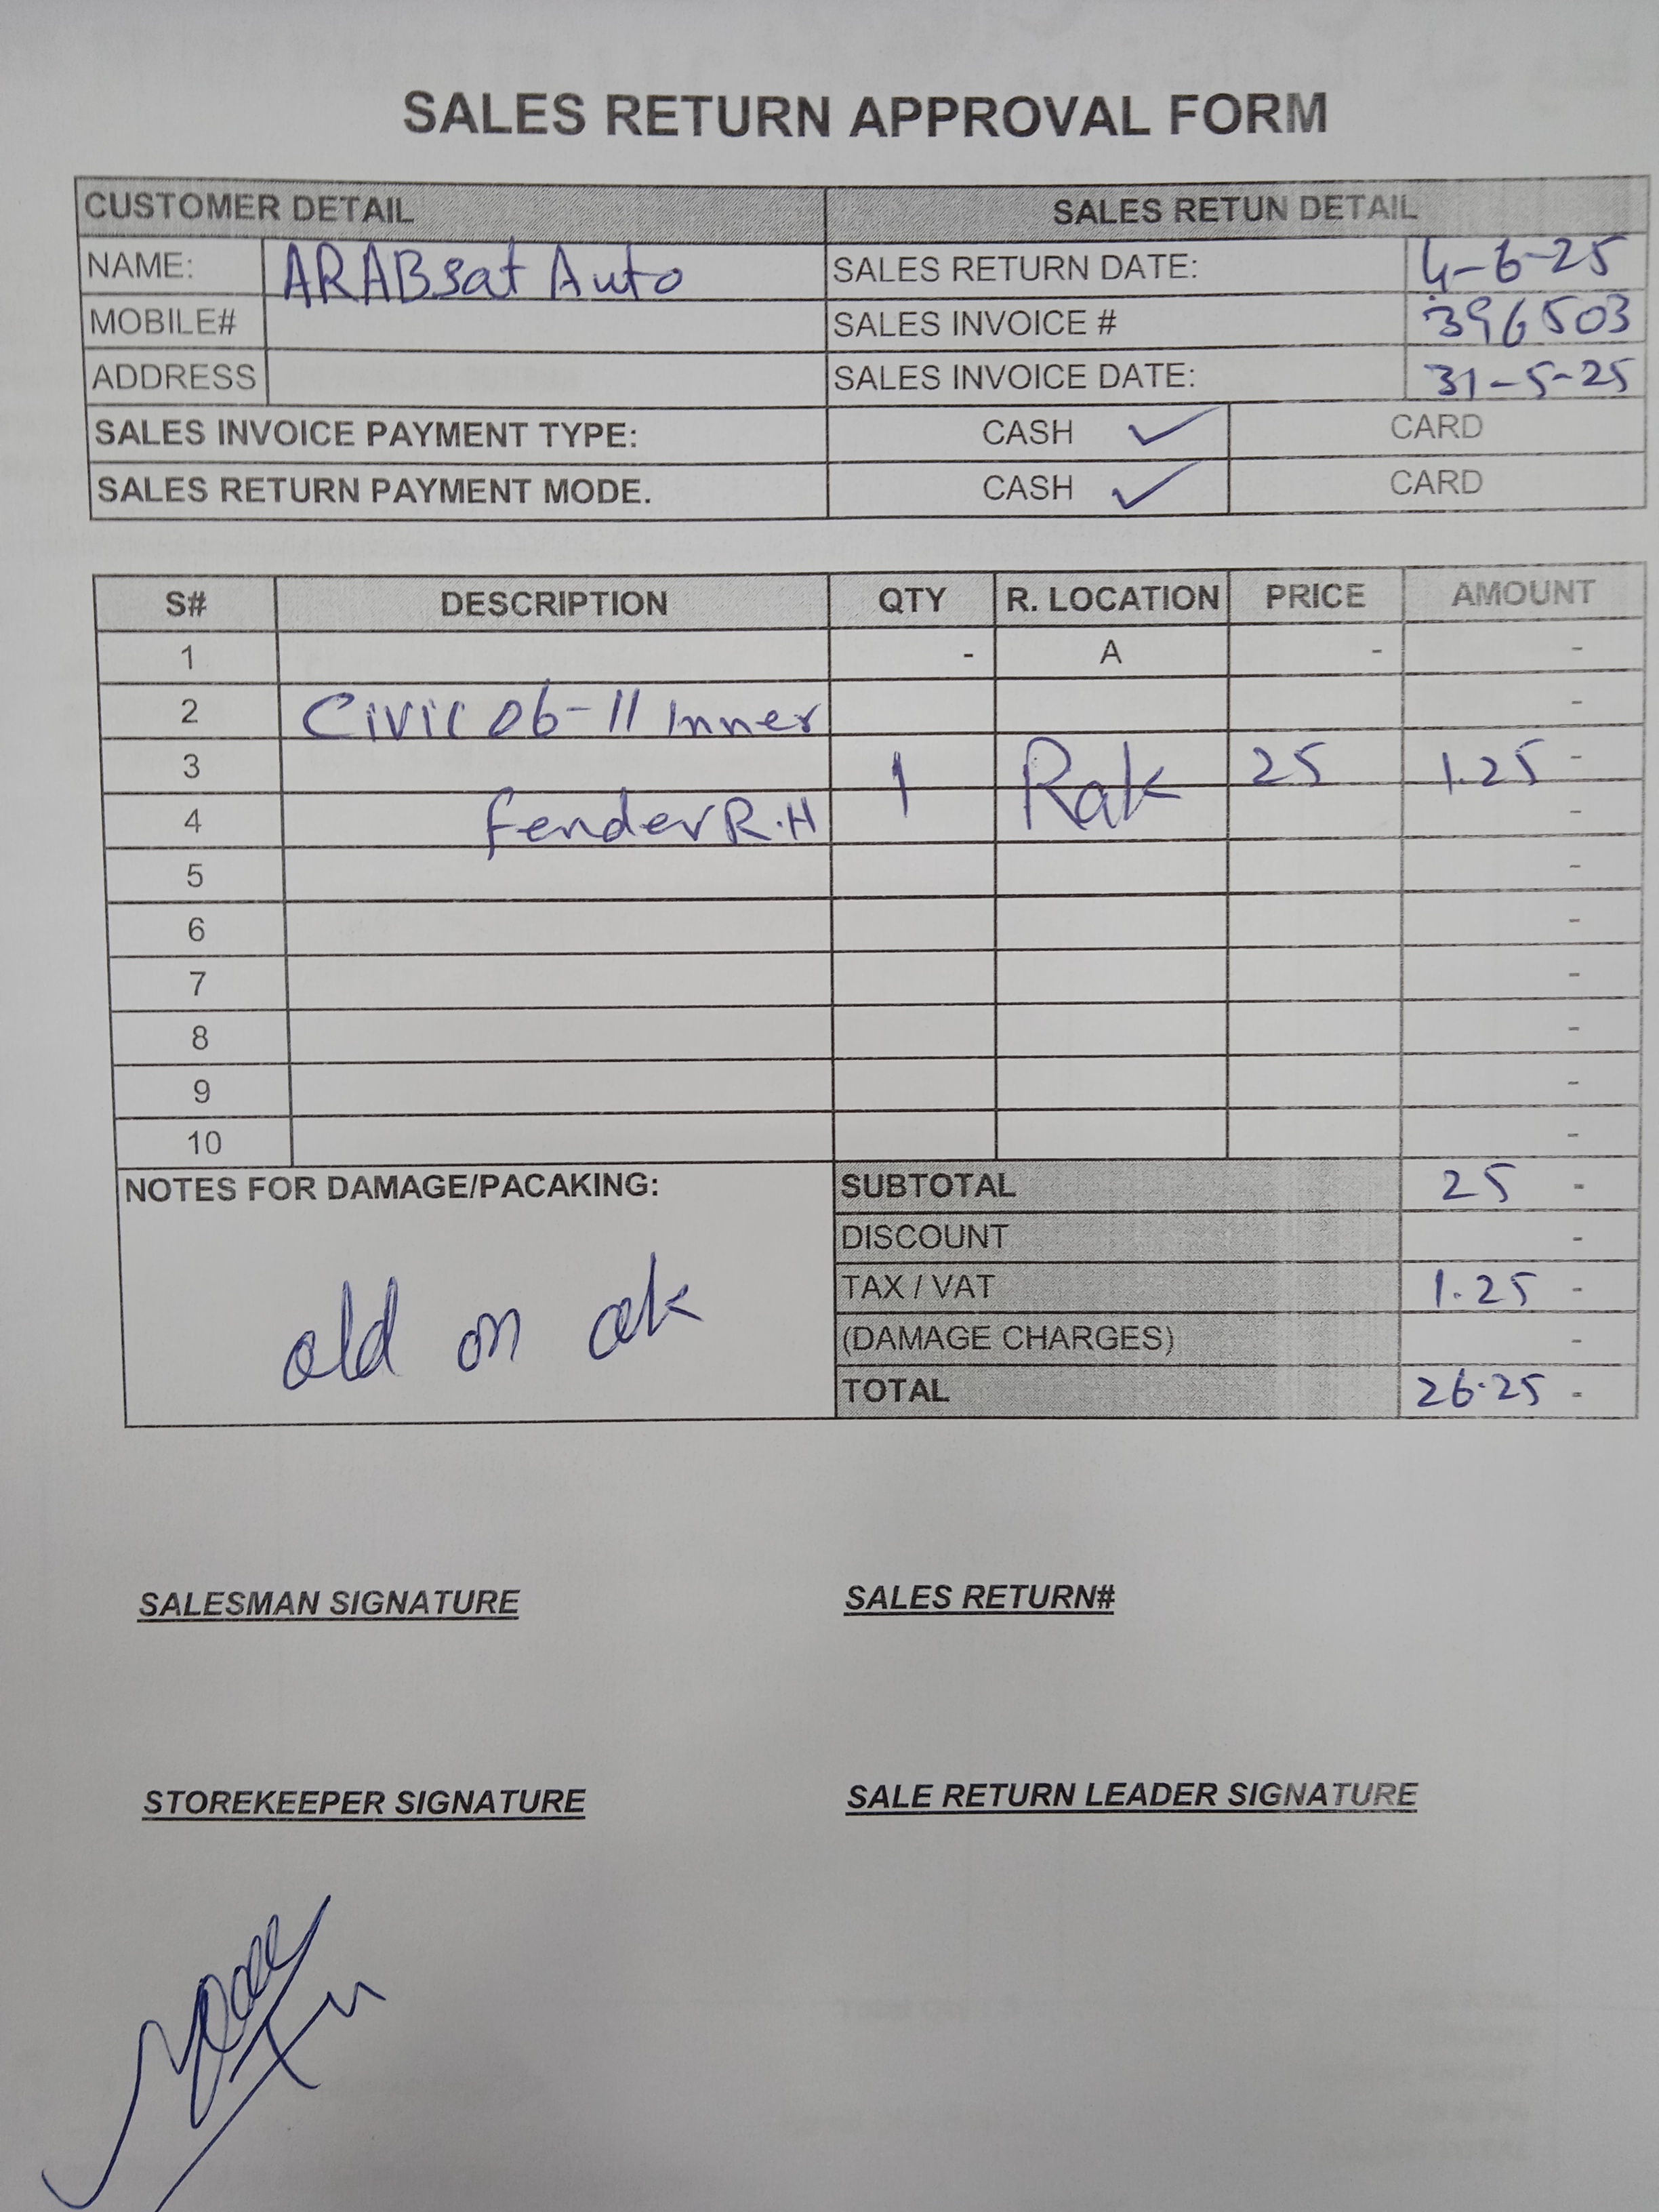 SALES RETURN APPROVAL FORM
CUSTOMER DETAIL SALES RETUN DETAIL
NAME: ARABsat Auto SALES RETURN DATE: 4-6-25
MOBILE# SALES INVOICE # 396503
ADDRESS SALES INVOICE DATE: 31-5-25
SALES INVOICE PAYMENT TYPE: CASH ✓ CARD
SALES RETURN PAYMENT MODE. CASH ✓ CARD
S# DESCRIPTION QTY R. LOCATION PRICE AMOUNT
1 - A - -
2 Civic 06-11 Inner -
3 1 Rak 25 1.25 -
4 fender R.H -
5 -
6 -
7 -
8 -
9 -
10 -
NOTES FOR DAMAGE/PACAKING: SUBTOTAL 25 -
DISCOUNT -
TAX / VAT 1.25 -
old on ok (DAMAGE CHARGES) -
TOTAL 26.25 -
SALESMAN SIGNATURE SALES RETURN#
STOREKEEPER SIGNATURE SALE RETURN LEADER SIGNATURE